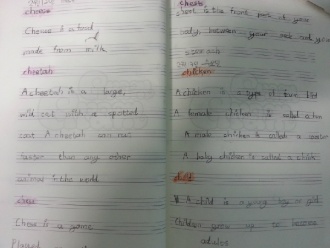 cheese
Cheese is a food
made from milk
cheetah
A cheetah is a large,
wild cat with a spotted
coat A cheetah can run
faster than any other
animal in the world
chess
Chess is a game
Played
chest
chest is the front part of your
body, between your neck and your
chicken
A chicken is a type of
A female chicken is called a hen
A male chicken is called a
A baby chicken is called a chick
child
A child is a young boy or girl
Children grow up to become
adults